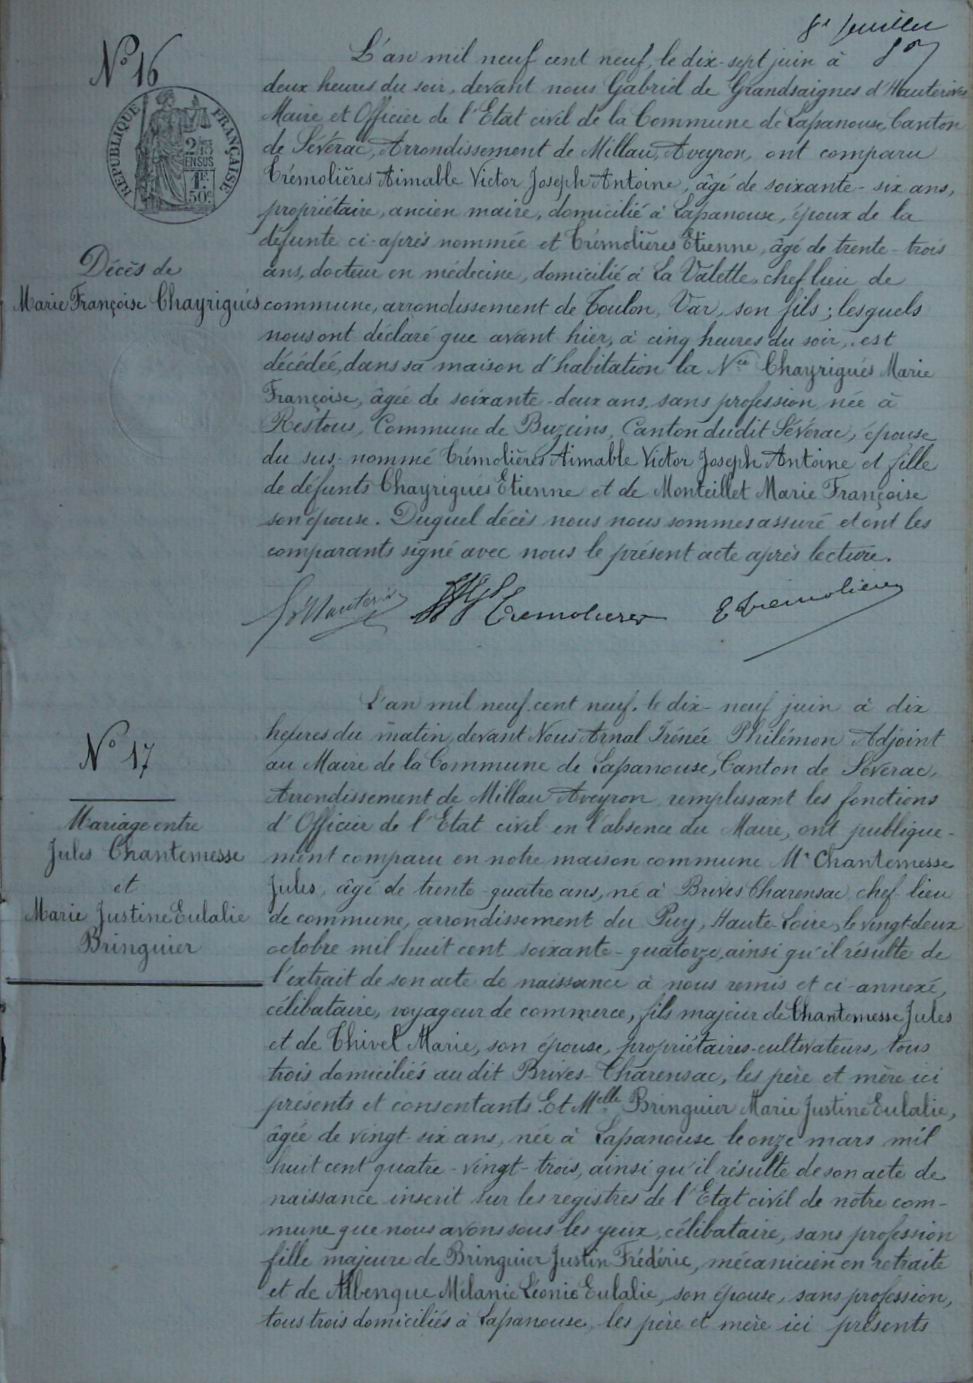 8e feuillet
N° 16
RÉPUBLIQUE FRANÇAISE
2/10 EN SUS
1F 50c
Décès de
Marie Françoise Chayrigués
L'an mil neuf cent neuf, le dix-sept juin à
deux heures du soir, devant nous Gabriel de Grandsaignes d'Hauterives
Maire et Officier de l'Etat civil de la Commune de Lapanouse, Canton
de Sévérac, Arrondissement de Millau, Aveyron, ont comparu
Trémolières Aimable Victor Joseph Antoine, âgé de soixante-six ans,
propriétaire, ancien maire, domicilié à Lapanouse, époux de la
défunte ci-après nommée et Trémolières Etienne, âgé de trente-trois
ans, docteur en médecine, domicilié à La Valette, chef lieu de
commune, arrondissement de Toulon, Var, son fils; lesquels
nous ont déclaré que avant hier, à cinq heures du soir, est
décédée, dans sa maison d'habitation la Née Chayrigués Marie
Françoise, âgée de soixante-deux ans, sans profession née à
Restous, Commune de Buzeins, Canton dudit Sévérac, épouse
du sus-nommé Trémolières Aimable Victor Joseph Antoine et fille
de défunts Chayrigués Etienne et de Monteillet Marie Françoise
son épouse. Duquel décès nous nous sommes assuré et ont les
comparants signé avec nous le présent acte après lecture.
Trémolières E Trémolières
N° 17
Mariage entre
Jules Chantemesse
et
Marie Justine Eulalie
Bringuier
L'an mil neuf cent neuf, le dix-neuf juin à dix
heures du matin, devant Nous Arnal Irénée Philémon Adjoint
au Maire de la Commune de Lapanouse, Canton de Sévérac,
Arrondissement de Millau Aveyron, remplissant les fonctions
d'Officier de l'Etat civil en l'absence du Maire, ont publique-
ment comparu en notre maison commune Mr Chantemesse
Jules, âgé de trente-quatre ans, né à Brives Charensac chef lieu
de commune, arrondissement du Puy, Haute-Loire, le vingt-deux
octobre mil huit cent soixante-quatorze, ainsi qu'il résulte de
l'extrait de son acte de naissance à nous remis et ci-annexé,
célibataire, voyageur de commerce, fils majeur de Chantemesse Jules
et de Thivel Marie, son épouse, propriétaires-cultivateurs, tous
trois domiciliés au dit Brives-Charensac, les père et mère ici
présents et consentants. Et Melle Bringuier Marie Justine Eulalie,
âgée de vingt-six ans, née à Lapanouse le onze mars mil
huit cent quatre-vingt-trois, ainsi qu'il résulte de son acte de
naissance inscrit sur les registres de l'Etat civil de notre com-
mune que nous avons sous les yeux, célibataire, sans profession
fille majeure de Bringuier Justin Frédéric, mécanicien en retraite
et de Albenque Mélanie Léonie Eulalie, son épouse, sans profession,
tous trois domiciliés à Lapanouse, les père et mère ici présents